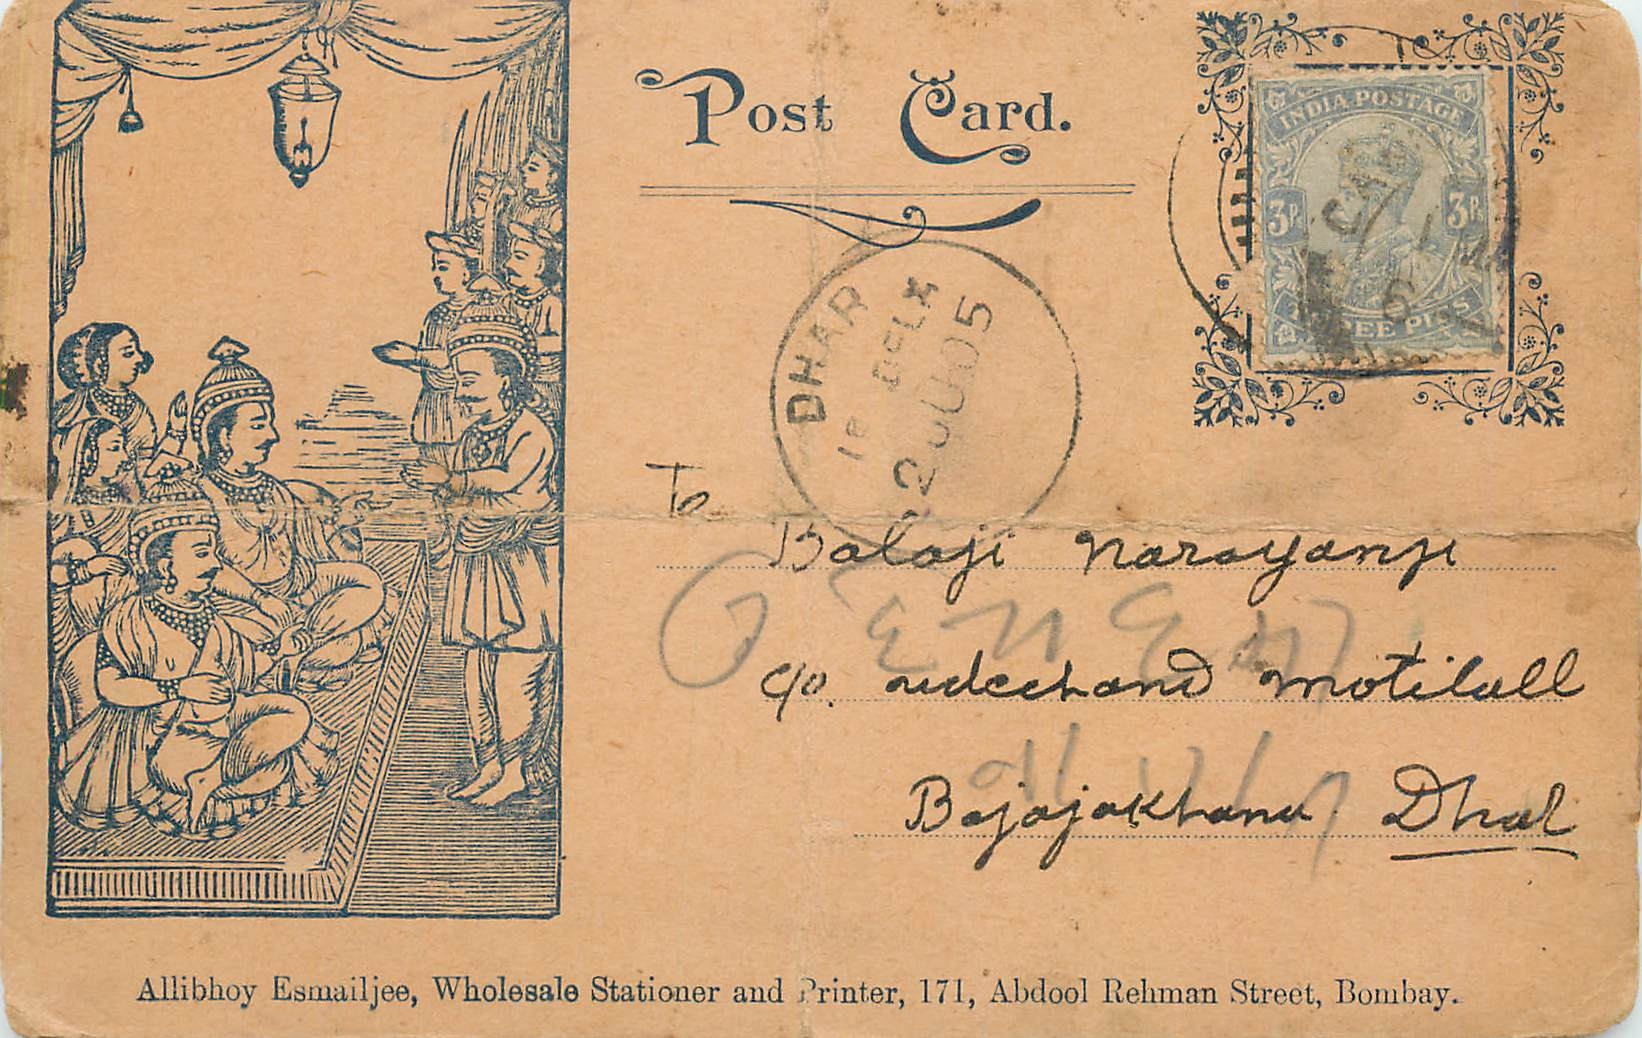 Post Card.
INDIA POSTAGE
3 Ps
3 Ps
THREE PIES
DHAR
DELY
2 JU 05
To
Balaji Narayanji
c/o
Motilall
Bajajakhana Dhar
Allibhoy Esmailjee, Wholesale Stationer and Printer, 171, Abdool Rehman Street, Bombay.